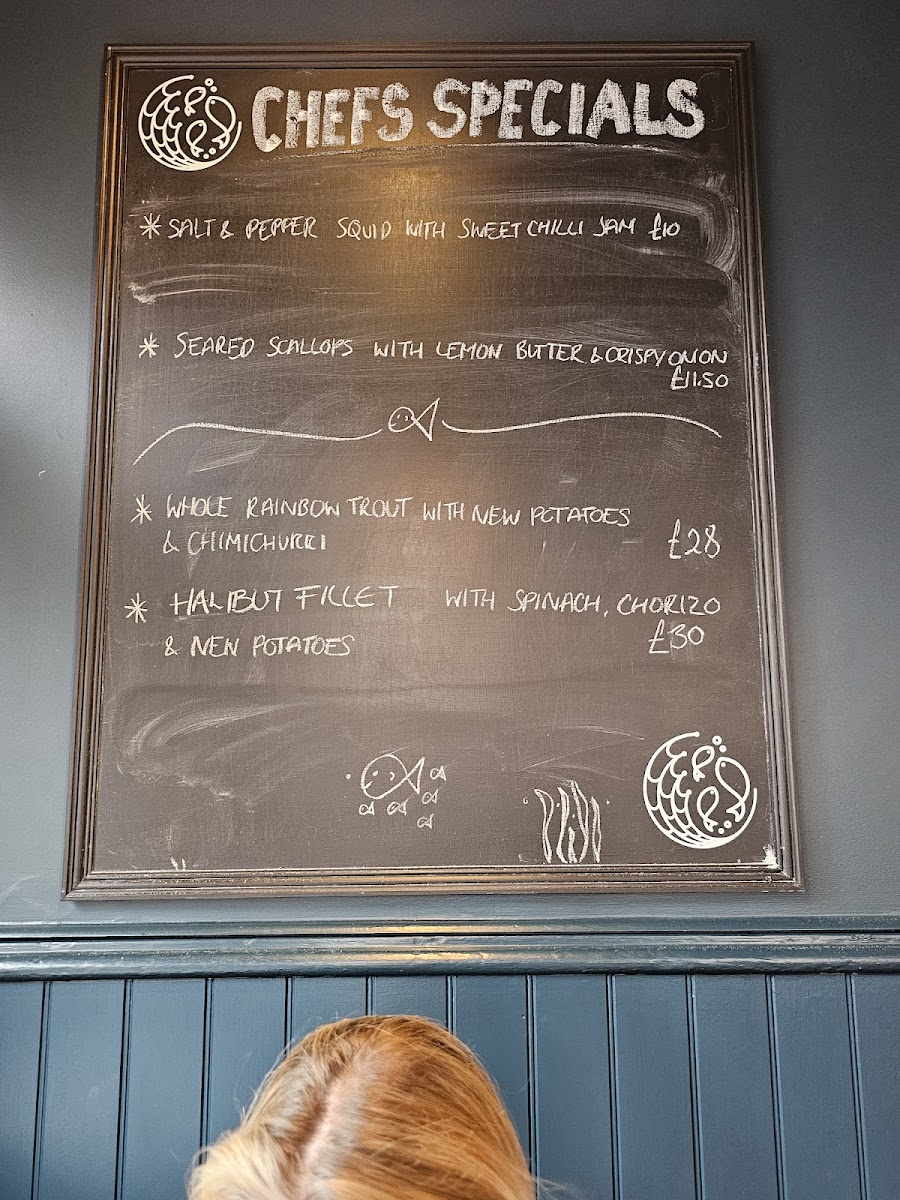 CHEFS SPECIALS
* SALT & PEPPER SQUID WITH SWEET CHILLI JAM £10
* SEARED SCALLOPS WITH LEMON BUTTER & CRISPY ONION
£11.50
* WHOLE RAINBOW TROUT WITH NEW POTATOES
& CHIMICHURRI £28
* HALIBUT FILLET WITH SPINACH, CHORIZO
& NEW POTATOES £30